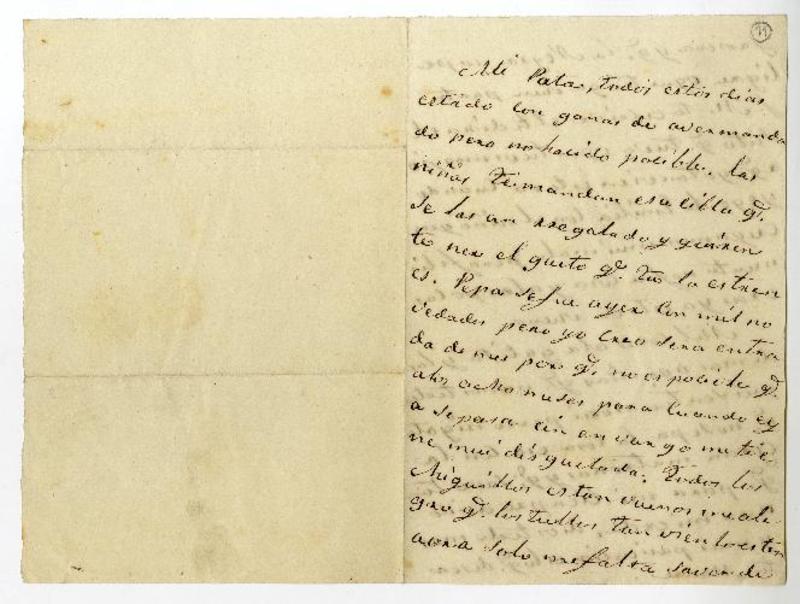 11
Mi Pata, todos estos dias
estado con ganas de aver manda
do pero no hacido pocible. las
niñas te imandan esa cilla q.e
se las an rregalado y quiren
te ner el gusto q.e tu la estren
es. Pepa se fue ayer con mil no
vedades pero yo creo sera entra
da de mes pors q.e no es pocible q.e
a los ocho meses para cuando ey
a se pasa cin en vargo me tie
ne mui disgustada. todos los
Chiquillos estan vuenos me ale
gro q.e los tullos tan vien lo esten
aora solo me falta saver de